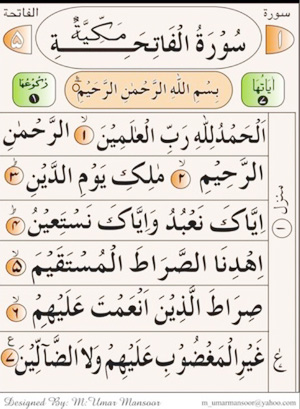 سورة الفاتحة
١ سُوْرَةُ الْفَاتِحَةِ مَكِّيَّةٌ ٥
اٰيَاتُهَا ٧ بِسْمِ اللهِ الرَّحْمٰنِ الرَّحِيْمِ رُكُوْعُهَا ١
اَلْحَمْدُ لِلّٰهِ رَبِّ الْعٰلَمِيْنَ ١ الرَّحْمٰنِ
الرَّحِيْمِ ٢ مٰلِكِ يَوْمِ الدِّيْنِ ٣
اِيَّاكَ نَعْبُدُ وَاِيَّاكَ نَسْتَعِيْنُ ٤
اِهْدِنَا الصِّرَاطَ الْمُسْتَقِيْمَ ٥
صِرَاطَ الَّذِيْنَ اَنْعَمْتَ عَلَيْهِمْ ٦
غَيْرِ الْمَغْضُوْبِ عَلَيْهِمْ وَلَا الضَّآلِّيْنَ ٧
منزل ١
Designed By: M. Umar Mansoor
m_umarmansoor@yahoo.com